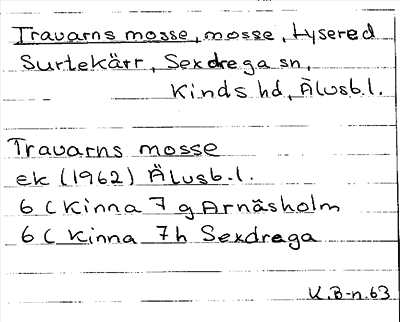 Travarns mosse, mosse, Lysered
Surtekärr, Sexdrega sn,
Kinds hd, Älvsb.l.
Travarns mosse
ek (1962) Älvsb.l.
6 C Kinna 7 g Arnäsholm
6 C Kinna 7h Sexdrega
K.B-n.63